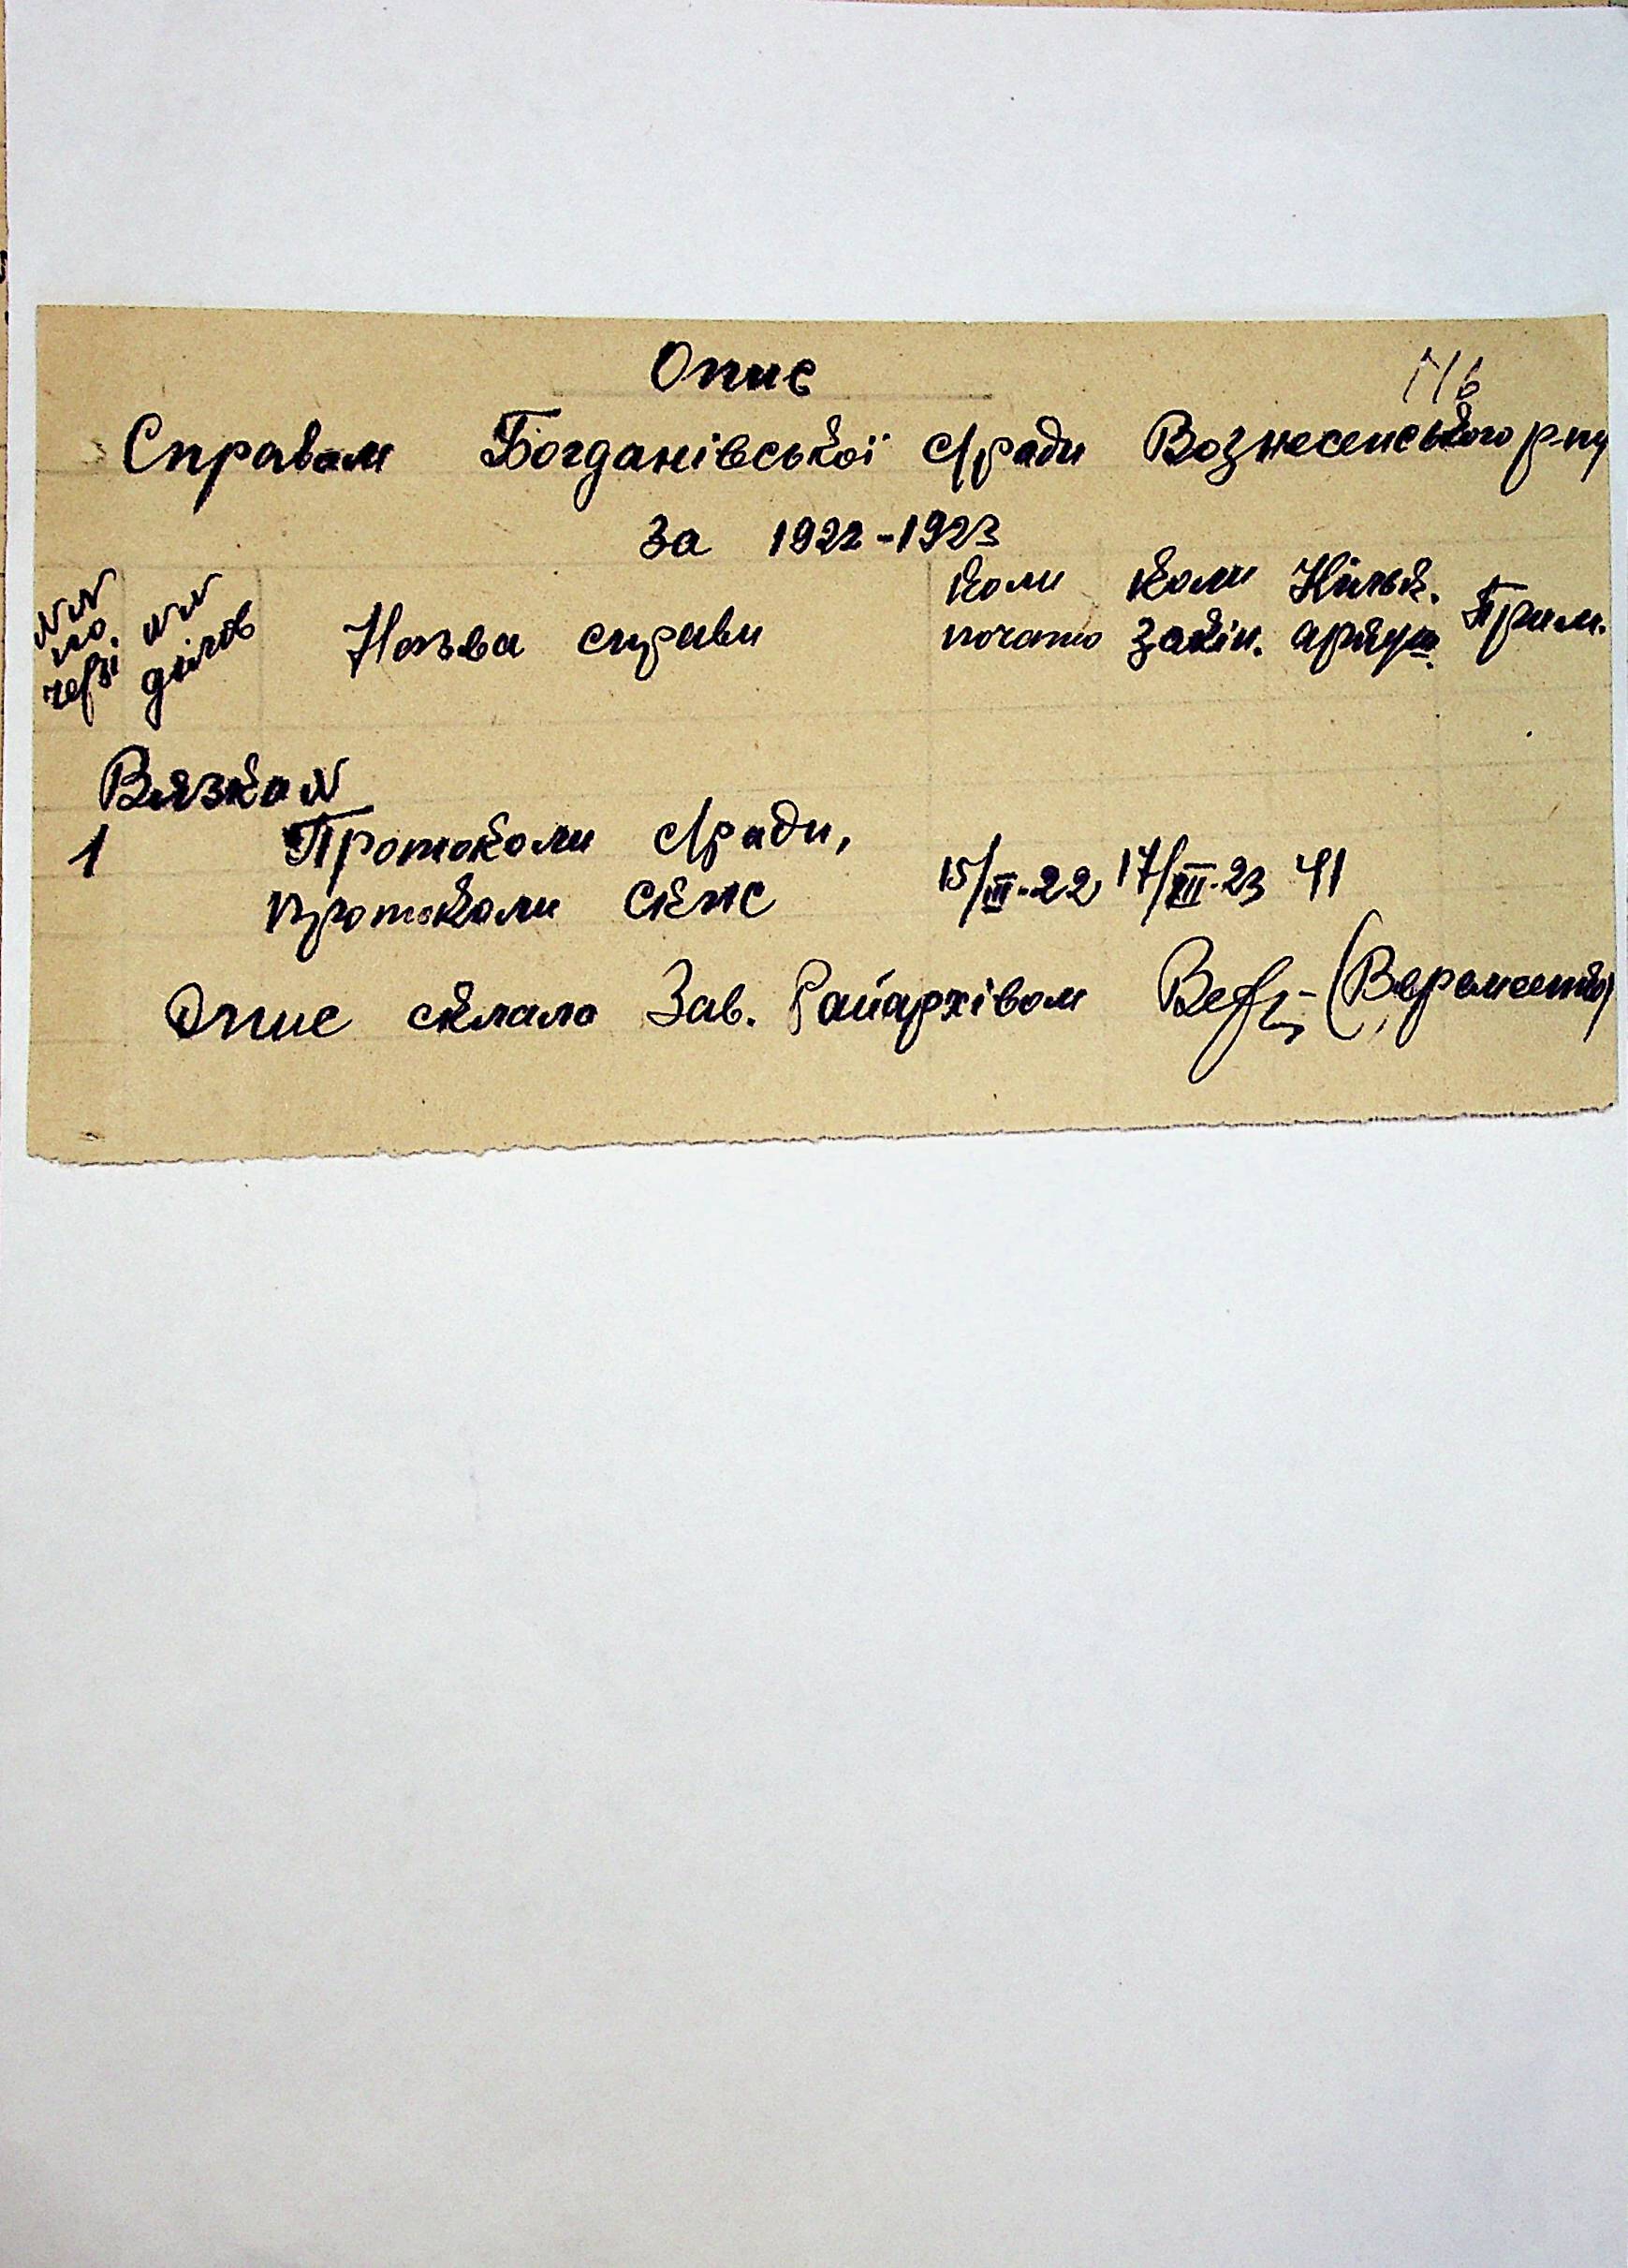 Опис
116
Справам Богданівської с/ради Вознесенського р-ну
За 1922-1923
NN по черзі
NN ділов
Назва справи
Коли почато
Коли закін.
Кільк. аркуш.
Прим.
Вязка N
1 Протоколи с/ради,
протоколи СКНС 15/III-22, 17/XII-23 41
Опис склала Зав. Райархівом